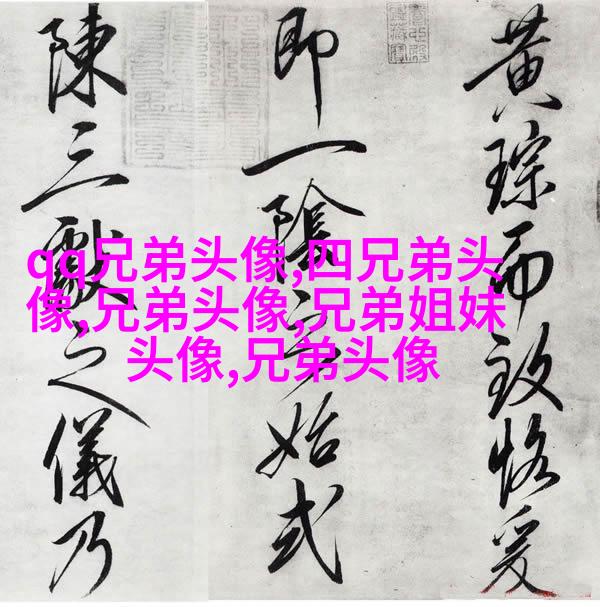 黄琮而致恪爰
即一陰始式
陳三獻之儀乃
qq兄弟头像,四兄弟头
像,兄弟头像,兄弟姐妹
头像,兄弟头像